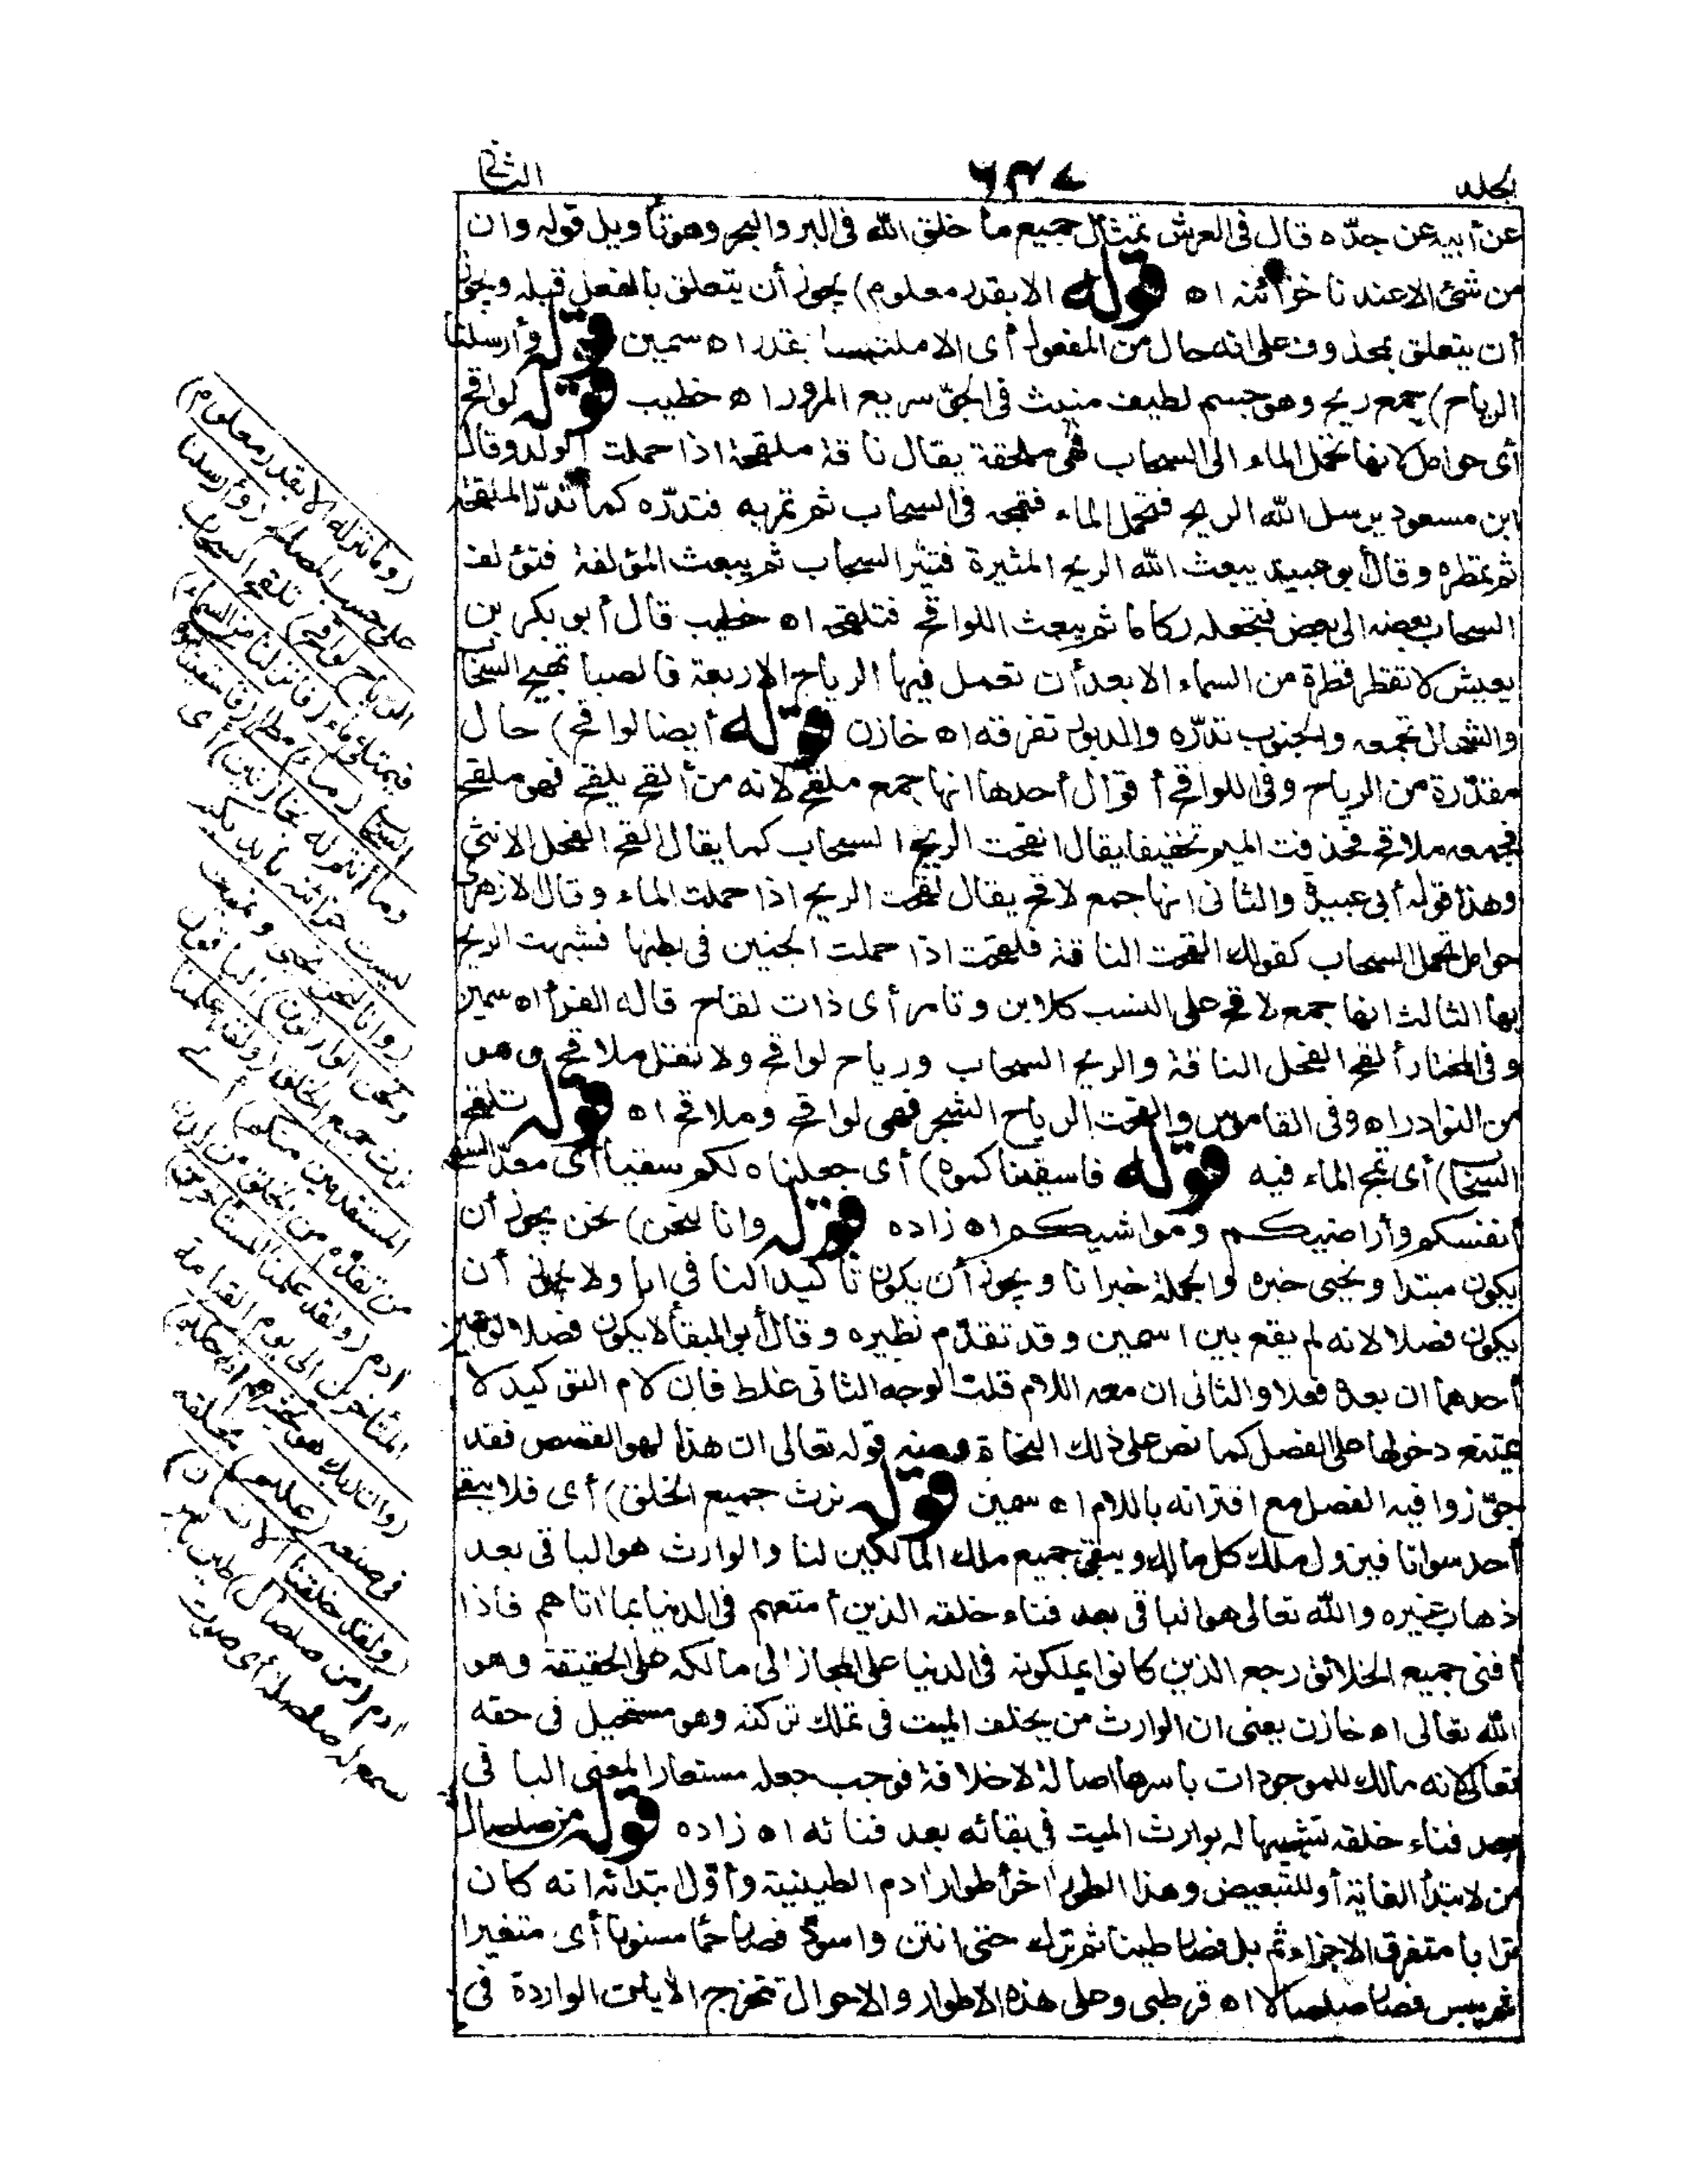 الجلد
٦٣٧
الثاني
عن أبيه عن جدّه قال فى العرش تمثال جميع ما خلق الله فى البر والبحر وهو تأويل قوله وان
من شئ الا عندنا خزائنه اه قوله الا بقدر معلوم) يجوز أن يتعلق بالفعل قبله ويجوز
أن يتعلق بمحذوف على انه حال من المفعول أى الا ملتبسا بقدر اه سمين قوله وأرسلنا
الرياح) جمع ريح وهو جسم لطيف منبث فى الجوّ سريع المرور اه خطيب قوله لواقح
أى حوامل لانها تحمل الماء الى السحاب فهى ملحقة يقال ناقة ملقحة اذا حملت الولد وقال
ابن مسعود يرسل الله الريح فتحمل الماء فتمجه فى السحاب ثم تمر به فتدرّه كما تدرّ الملقحة
ثم تمطره وقال أبو عبيد يبعث الله الريح المثيرة فتثير السحاب ثم يبعث المؤلفة فتؤلف
السحاب بعضه الى بعض فتجعله ركاما ثم يبعث اللواقح فتلقحه اه خطيب قال أبو بكر بن
يعيش لا تقطر قطرة من السماء الا بعد أن تعمل فيها الرياح الاربعة فالصبا تهيج السحاب
والشمال تجمعه والجنوب تدرّه والدبور تفرقه اه خازن قوله أيضا لواقح) حال
مقدّرة من الرياح وفى اللواقح أقوال أحدها انها جمع ملقح لانه من ألقح يلقح فهو ملقح
فجمعه ملاقح فحذفت الميم تخفيفا يقال القحت الريح السحاب كما يقال القح الفحل الانثى
وهذا قول أبى عبيدة والثانى انها جمع لاقح يقال لقحت الريح اذا حملت الماء وقال الازهرى
حوامل تحمل السحاب كقولك القحت الناقة فلقحت اذا حملت الجنين فى بطنها فشبهت الريح
بها الثالث انها جمع لاقح على النسب كلابن وتامر أى ذات لقاح قاله الفرأ اه سمين
وفى المختار ألقح الفحل الناقة والريح السحاب ورياح لواقح ولا تقل ملاقح وهو
من النوادر اه وفى القاموس والقحت الرياح الشجر فهى لواقح وملاقح اه قوله تلقح
السحاب) أى تمج الماء فيه قوله فاسقيناكموه) أى جعلناه لكم سقيا أى معدّ السقى
أنفسكم وأراضيكم ومواشيكم اه زاده قوله وانا لنحن) نحن يجوز أن
يكون مبتدا ونحيى خبره والجملة خبر انا ويجوز أن يكون تأكيدا لنا فى انا ولا يجوز أن
يكون فصلا لانه لم يقع بين اسمين وقد تقدّم نظيره وقال أبو البقأ لا يكون فصلا لوجهين
أحدهما ان بعده فعلا والثانى ان معه اللام قلت الوجه الثانى غلط فان لام التوكيد لا
يمتنع دخولها على الفصل كما نص على ذلك النحاة ومنه قوله تعالى ان هذا لهو القصص فقد
جوّزوا فيه الفصل مع اقترانه باللام اه سمين قوله نرث جميع الخلق) أى فلا يبقى
أحد سوانا فيزول ملك كل مالك ويبقى جميع ملك المالكين لنا والوارث هو الباقى بعد
ذهاب غيره والله تعالى هو الباقى بعد فناء خلقه الذين أمتعهم فى الدنيا بما اتاهم فاذا
أفنى جميع الخلائق رجع الذين كانوا يملكونه فى الدنيا على المجاز الى مالكه على الحقيقة وهو
الله تعالى اه خازن يعنى ان الوارث من يخلف الميت فى تملك تركته وهو مستحيل فى حقه
تعالى لانه مالك للموجودات باسرها اصالة لا خلافة فوجب جعله مستعارا لمعنى الباقى
بعد فناء خلقه تشبيها له بوارث الميت فى بقائه بعد فنائه اه زاده قوله من صلصال
من لابتدأ الغاية أو للتبعيض وهذا الطور اخر أطوار ادم الطينية وأوّل ابتدائه انه كان
ترابا متفرق الاجزاء ثم بل فصار طينا ثم ترك حتى انتن واسودّ فصار حمأ مسنونا أى متغيرا
ثم يبس فصار صلصالا اه قرطبى وعلى هذه الاطوار والاحوال تتخرج الأيات الواردة فى
(وما ننزله الا بقدر معلوم)
على حسب المصالح (وأرسلنا
الرياح لواقح) تلقح السحاب
فيمتلئ ماء (فانزلنا من السماء)
السحاب (ماء) مطرا (فاسقيناكموه
وما أنتم له بخازنين) أى
ليست خزائنه بأيديكم
(وانا لنحن نحيى ونميت
ونحن الوارثون) الباقون
نرث جميع الخلق (ولقد علمنا
المستقدمين منكم) أى
من تقدّم من الخلق من لدن
ادم (ولقد علمنا المستأخرين)
المتأخرين الى يوم القيامة
(وان ربك هو يحشرهم انه حكيم)
فى صنعه (عليم) بخلقه
(ولقد خلقنا الانسان)
ادم (من صلصال) طين يابس
يسمع له صلصلة أى صوت